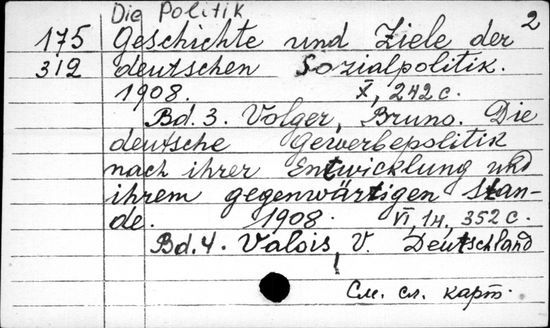 Die Politik 2
175 Geschichte und Ziele der
312 deutschen Sozialpolitik.
1908. X, 242 с.
Bd. 3. Volger, Bruno. Die
deutsche Gewerbepolitik
nach ihrer Entwicklung und
ihrem gegenwärtigen Stan-
de. 1908. VI, 1н, 352 с.
Bd. 4. Valois, V. Deutschland
См. сл. карт.